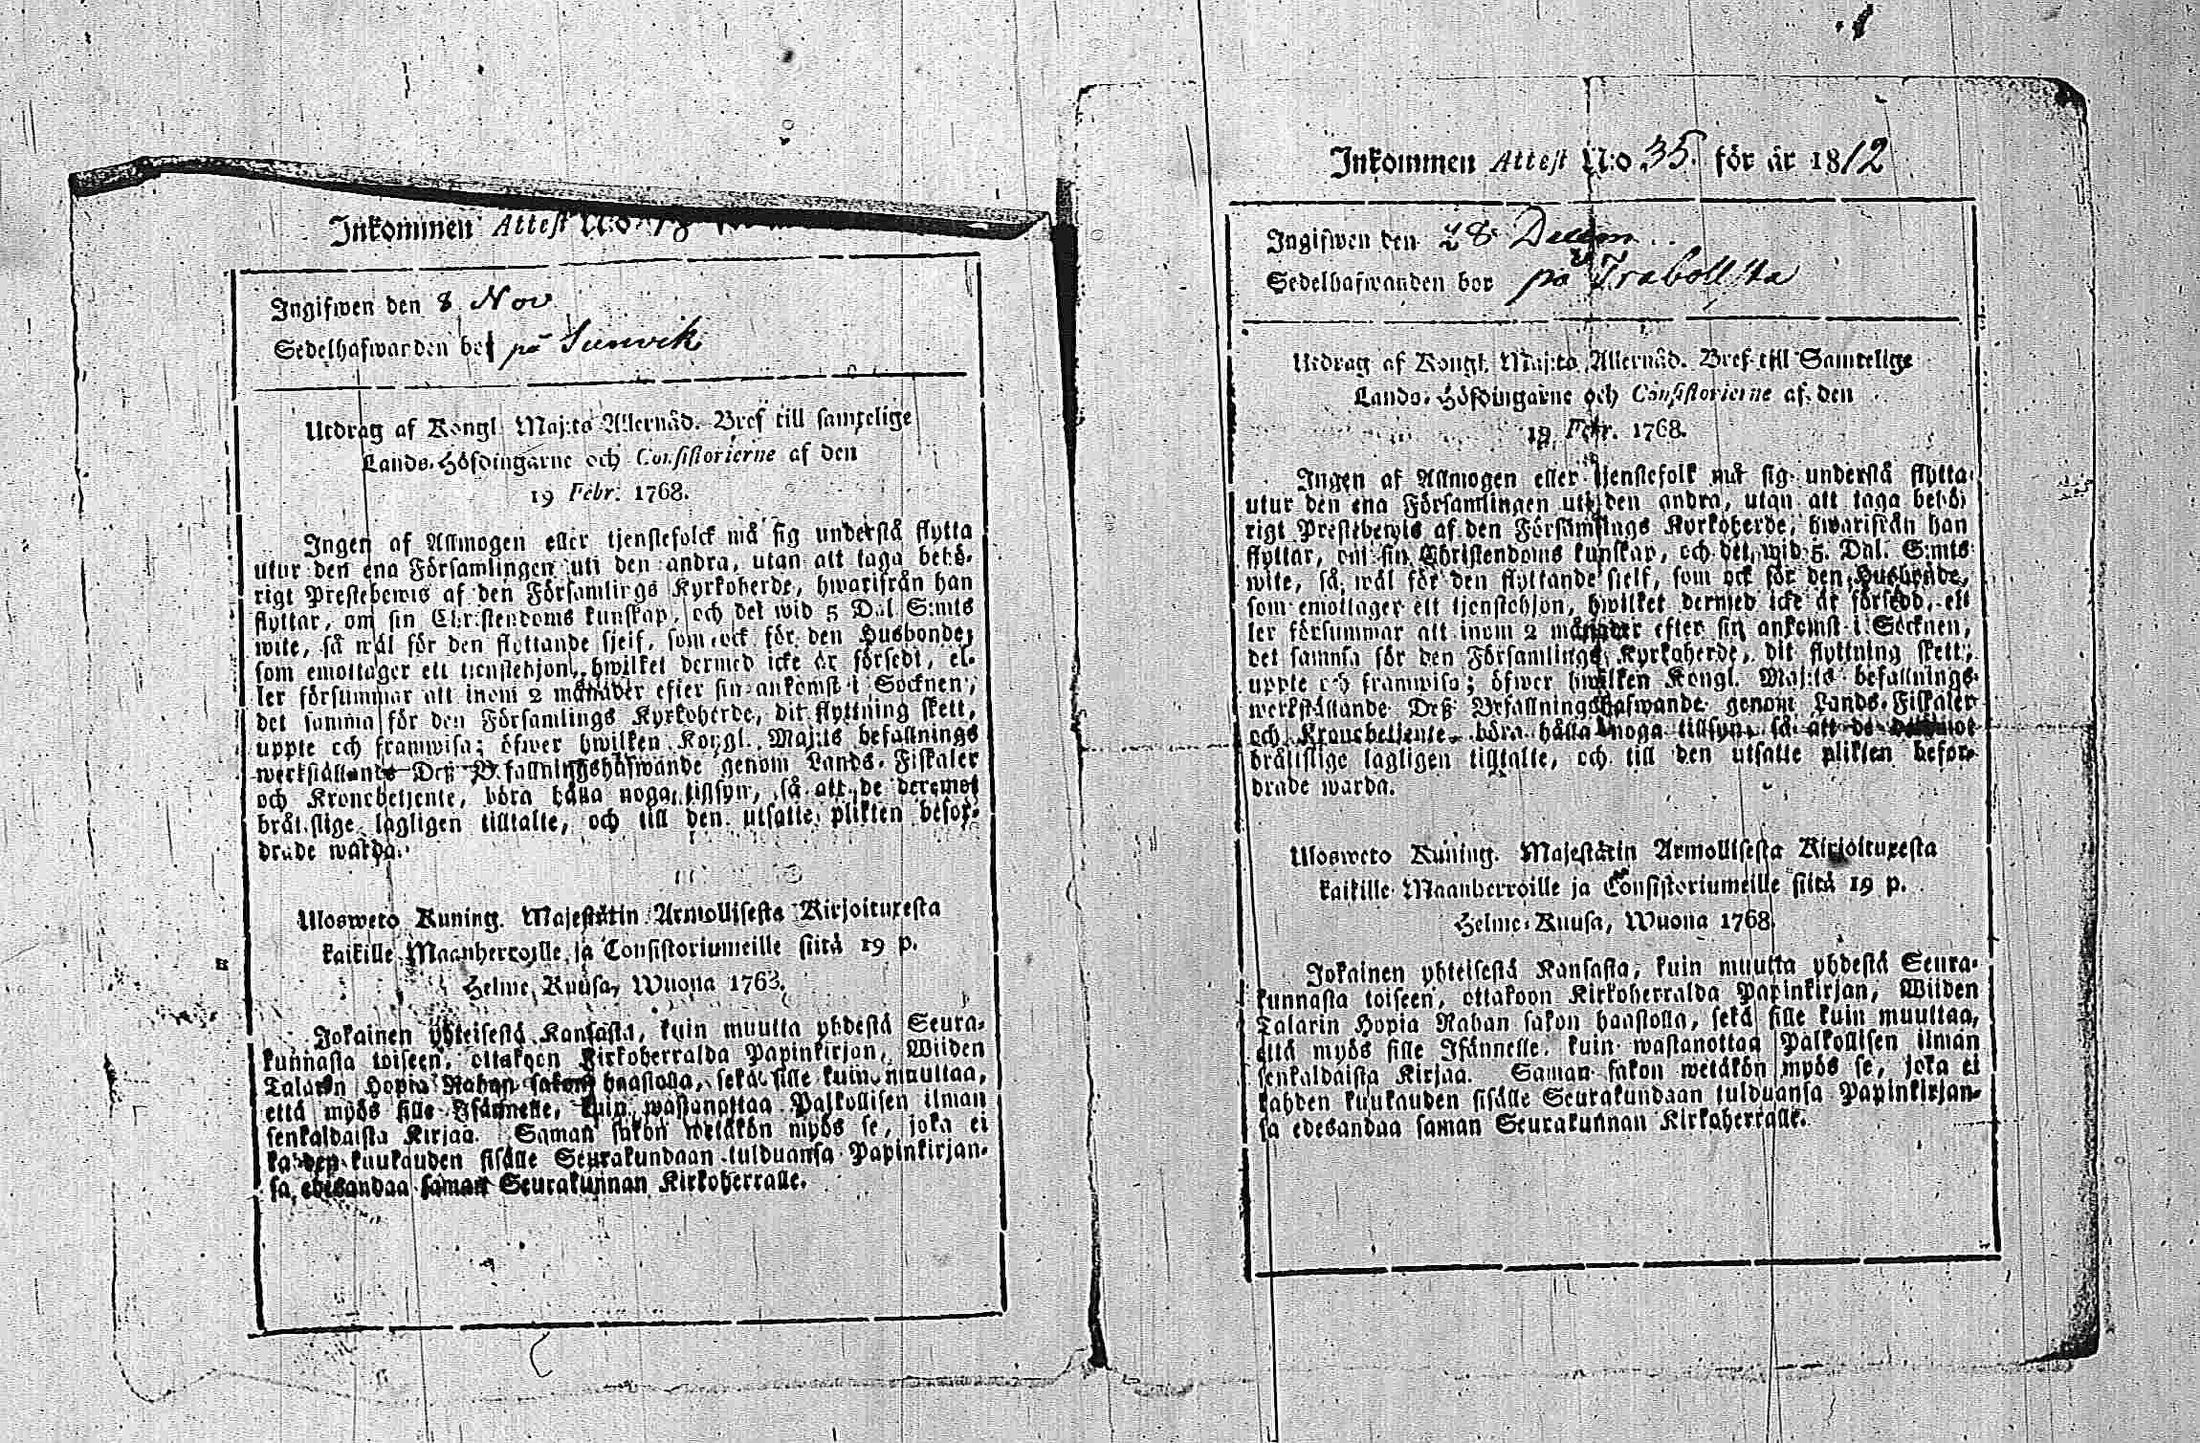 Inkommen Attest N:o
Ingifwen den 8 Nov
Sedelhafwanden bor på Sunvik
Utdrag af Kongl. Maj:ts Allernåd. Bref till samtelige
Lands-Höfdingarne och Consistorierne af den
19 Febr. 1768.
Ingen af Allmogen eller tjenstefolck må sig understå flytta
utur den ena Församlingen uti den andra, utan att taga behö-
rigt Prestebewis af den Församlings Kyrkoherde, hwarifrån han
flyttar, om sin Christendoms kunskap, och det wid 5 Dal. S:mts
wite, så wäl för den flyttande sjelf, som ock för den Husbonde,
som emottager ett tjenstehjon, hwilket dermed icke är försedt, el-
ler försummar att inom 2 månader efter sin ankomst i Socknen,
det samma för den Församlings Kyrkoherde, dit flyttning skett,
uppte och framwisa; öfwer hwilken Kongl. Maj:ts befallnings
werkställande Deß Befallningshafwande genom Lands-Fiskaler
och Kronobetjente, böra hålla noga tillsyn, så att de deremot
bråtslige lagligen tilltalte, och till den utsatte plikten befor-
drade warda.
Ulosweto Kuning. Majestätin Armollisesta Kirjoituxesta
kaikille Maanherroille ja Consistoriumeille siitä 19 p.
Helme-Kuusa, Wuona 1768.
Jokainen yhteisestä Kansasta, kuin muutta yhdestä Seura-
kunnasta toiseen, ottakoon Kirkoherralda Papinkirjan, Wiiden
Talarin Hopia Rahan sakon haastolla, sekä sille kuin muuttaa,
että myös sille Isännelle, kuin wastanottaa Palkollisen ilman
senkaldaista Kirjaa. Saman sakon wetäkön myös se, joka ei
kahden kuukauden sisälle Seurakundaan tulduansa Papinkirjan-
sa edesandaa saman Seurakunnan Kirkoherralle.
Inkommen Attest N:o 35. för år 1812
Ingifwen den 28 Decem
Sedelhafwanden bor på Trabollsta
Utdrag af Kongl. Maj:ts Allernåd. Bref till Samtelige
Lands-Höfdingarne och Consistorierne af den
19 Febr. 1768.
Ingen af Allmogen eller tjenstefolk må sig understå flytta
utur den ena Församlingen uti den andra, utan att taga behö-
rigt Prestebewis af den Församlings Kyrkoherde, hwarifrån han
flyttar, om sin Christendoms kunskap, och det wid 5. Dal. S:mts
wite, så wäl för den flyttande sjelf, som ock för den Husbonde,
som emottager ett tjenstehjon, hwilket dermed icke är försedd, el-
ler försummar att inom 2 månader efter sin ankomst i Socknen,
det samma för den Församlings Kyrkoherde, dit flyttning skett,
uppte och framwisa; öfwer hwilken Kongl. Maj:ts befallnings-
werkställande Deß Befallningshafwande genom Lands-Fiskaler
och Kronobetjente, böra hålla noga tillsyn, så att de deremot
bråtslige lagligen tilltalte, och till den utsatte plikten befor-
drade warda.
Ulosweto Kuning. Majestätin Armollisesta Kirjoituxesta
kaikille Maanherroille ja Consistoriumeille siitä 19 p.
Helme-Kuusa, Wuona 1768.
Jokainen yhteisestä Kansasta, kuin muutta yhdestä Seura-
kunnasta toiseen, ottakoon Kirkoherralda Papinkirjan, Wiiden
Talarin Hopia Rahan sakon haastolla, sekä sille kuin muuttaa,
että myös sille Isännelle, kuin wastanottaa Palkollisen ilman
senkaldaista Kirjaa. Saman sakon wetäkön myös se, joka ei
kahden kuukauden sisälle Seurakundaan tulduansa Papinkirjan-
sa edesandaa saman Seurakunnan Kirkoherralle.